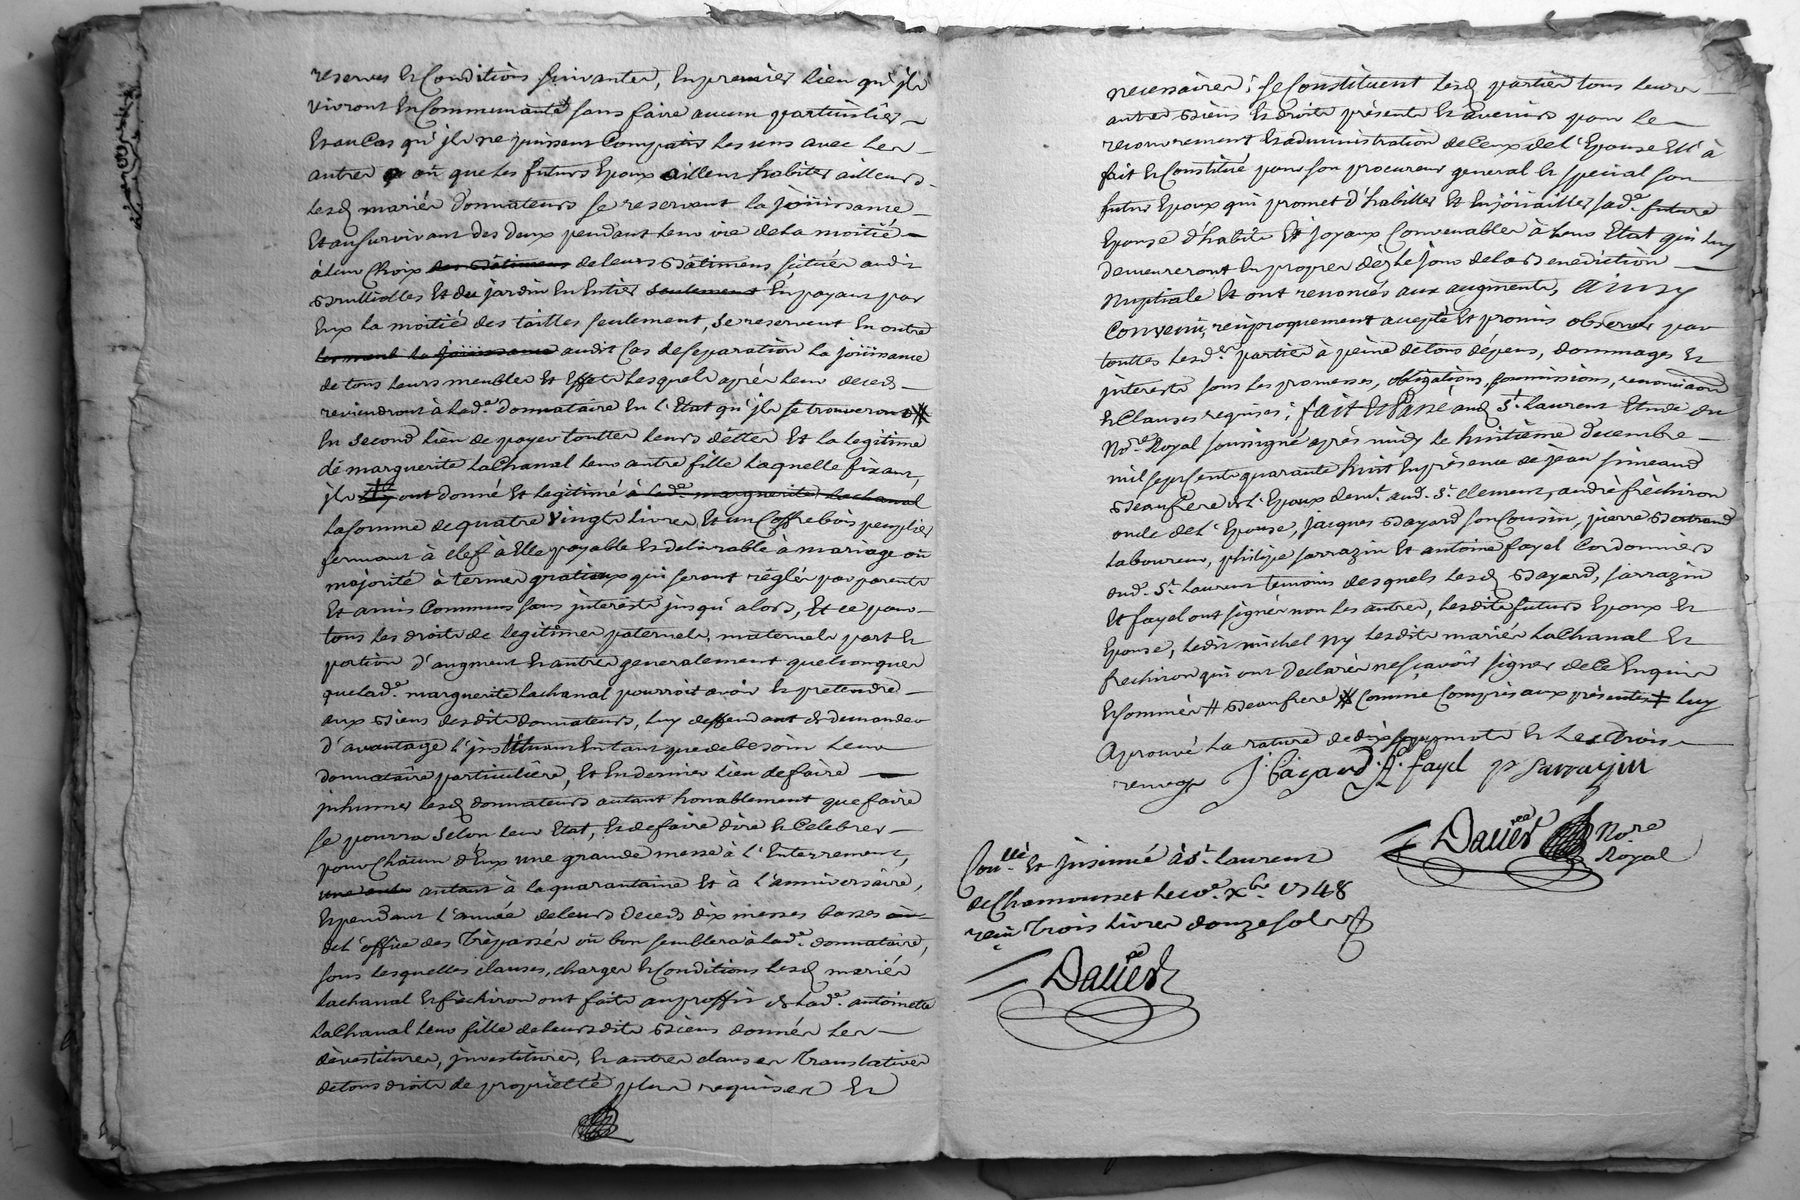 reserves et Conditions suivantes, en premier lieu qu'jls
vivront en Communauté sans faire aucun particulier
et au Cas qu'jls ne puissent Compatir les uns avec les
autres ou que les futurs Epoux aillent habiter ailleurs
lesd mariés donnateurs se reservent la joüissance
et au survivant des deux pendant leur vie de la moitié
à leur Choix des Bâtimens de leurs Bâtimens situés audit
Brullioles et du jardin en Entier seulement en payant par
Eux la moitié des tailles seulement, se reservent en outre
la joüissance audit Cas de separation la joüissance
de tous leurs meubles et Effets lesquels après leur deceds
reviendront à lad.e donnataire en l'Etat qu'jls se trouveront
En second lieu de payer touttes leurs dettes, et la legitime
de marguerite LaChanal leur autre fille laquelle fixant,
jls ont donné et legitimé à lad.e marguerite lachanal
la somme de quatre vingt livres et un Coffre bois peuplier
fermant à clef à Elle payable et delivrable à mariage ou
majorité à termes gratieux qui seront réglés par parents
et amis Communs sans jnterests jusqu'alors, et ce pour
tous les droits de legitimes paternels, maternels part et
portion d'augment et autres generalement quelconques
que lad.e marguerite Lachanal pourroit avoir et pretendre
aux Biens desdits donnateurs, luy deffendant de demander
d'avantage l'jnstituant en tant que de besoin leur
donnataire particuliére, et en dernier lieu de faire
jnhumer lesd donnateurs autant honablement que faire
se pourra selon leur Etat, et de faire dire et Celebrer
pour Chacun d'Eux une grande messe à l'Enterrement,
autant à la quarantaine et à l'anniversaire,
et pendant l'année de leurs deceds dix messes basses
de l'office des Trépassés où bon semblera à lad.e donnataire,
sous lesquelles clauses, charges et Conditions lesd mariés
Lachanal et fréchiron ont faits au proffit de lad.e antoinette
LaChanal leur fille de leursdits Biens donnés les
dévestitures, jnvestitures, et autres clauses Translatives
de tous droits de proprieté plus requises et
necessaires; se Constituent lesd parties tous leurs
autres Biens et droits présents et avenirs pour le
recouvrement et administration de Ceux de l'Epouse Ell'à
fait et Constitué pour son procureur general et special son
futur Epoux qui promet d'habiller et Enjoüailler sad.e future
Epouse d'habits et joyaux Convenables à leur Etat qui luy
demeureront en propres dez le jour de la Benediction
Nuptiale et ont renoncés aux augments, ainsy
Convenu, réciproquement accepté et promis observer par
touttes lesd.es parties à peine de tous dépens, dommages et
jnterests sous les promesses, obligations, soumissions, renonciaons
et Clauses requises; fait et Passé aud St. Laurent Etude du
No.re Royal soussigné après midy le huitiéme decembre
mil sept cents quarante huit en présence de jean simeand
Beaufrere de l'Epoux dem.t aud. St. clement, andré fréchiron
oncle de l'Epouse, jacques Bayard son Cousin, pierre Bertrand
Laboureur, philipe sarrazin et antoine fayel Cordonniers
aud. St. Laurent temoins desquels lesd Bayard, sarrazin
et fayel ont signés non les autres, lesdits futurs Epoux et
Epouse, ledit michel ny lesdits mariés LaChanal et
frechiron qui ont declarés ne sçavoir signer de Ce Enquis
et sommés # Beaufrere # Comme Compris aux présentes # luy
Aprouvé la rature de mots et les trois
renvoys J. Bayard A. fayel p sarrazin
Dauier No.re
Royal
Con.llé et jnsinué à St. Laurent
de Chamousset le x.bre 1748
reçu Trois livres douze sols
Dauier